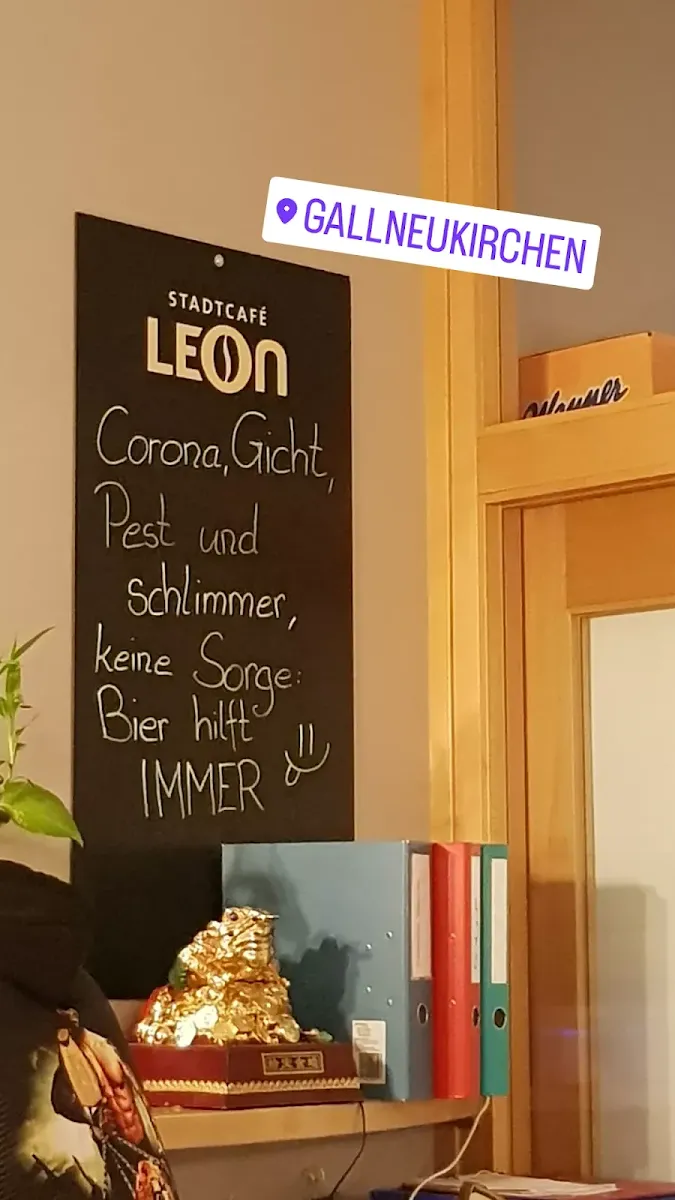 GALLNEUKIRCHEN
STADTCAFÉ
LEON
Corona, Gicht,
Pest und
schlimmer,
keine Sorge:
Bier hilft
IMMER